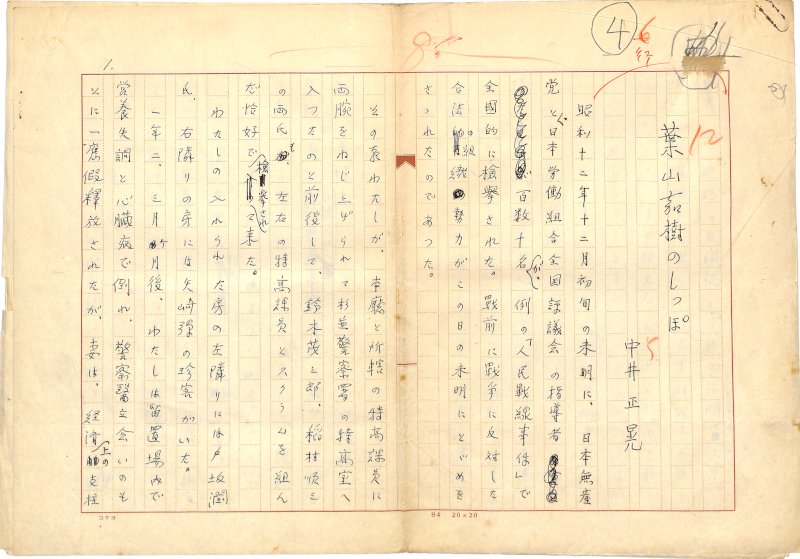 葉山嘉樹のしっぽ。
中井正晃
昭和十二年十二月初旬の未明に、日本無産
党と日本労働組合全国評議会の指導者
百数十名が、例の「人民戦線事件」で
全國的に檢擧された。戰前に戰争に反対した
合法的組織勢力がこの日の未明にとどめを
さされたのであつた。
その夜わたしが、本廳と所轄の特高課員に
両腕をねじ上げられて杉並警察署の特高室へ
入つたのと前後して、鈴木茂三郎、稲村順三
の両氏も左右の特高課員とスクラムを組ん
だ恰好で檢擧されて来た。
わたしの入れられた房の左隣りには戸坂潤
氏、右隣りの房には矢崎弾の珍客がいた。
一年二、三ヶ月後、わたしは留置場内で
営養失調と心臓病で倒れ、警察醫立会いのも
とに一應假釋放されたが、妻は、経済上の支柱
1.
4
6
12
5
コクヨ
B4 20×20